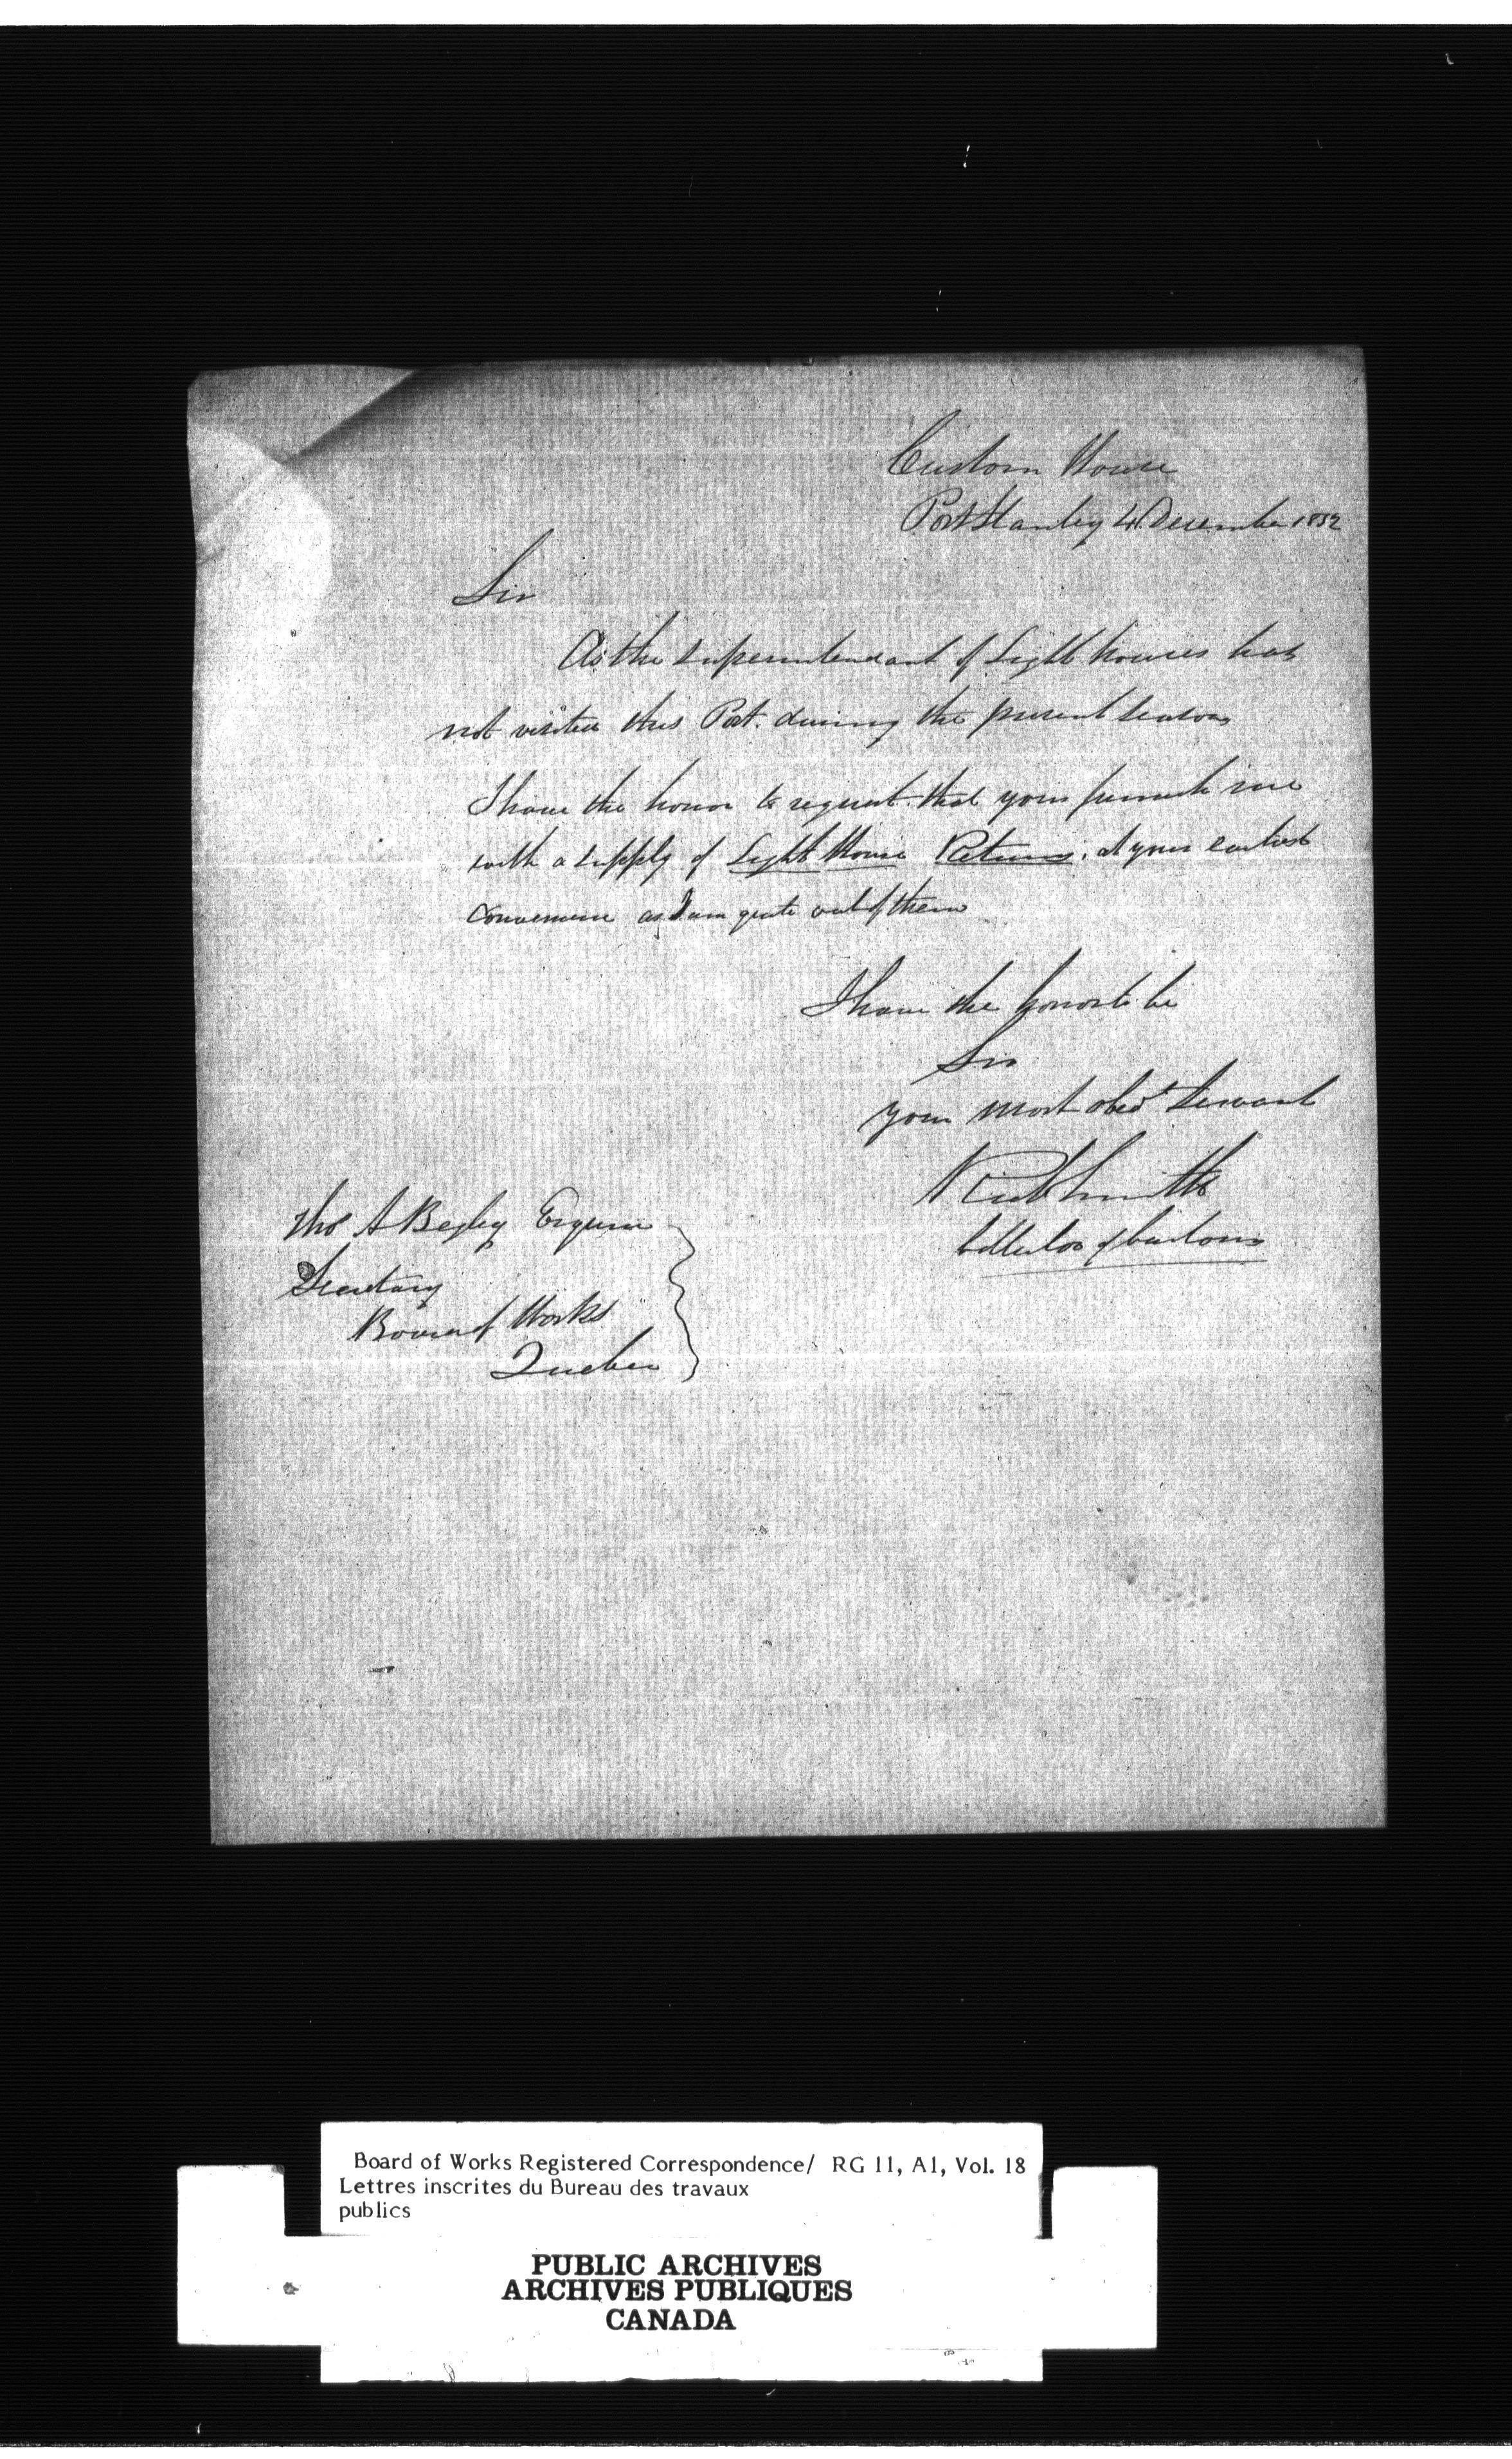 Custom House
Port Stanley 4 December 1852
Sir
As the Superintendant of Light houses has
not visited this Port. during the present season
I have the honor to request that you furnish me
with a supply of Light House Returns. at your earliest
convenience as I am quite out of them
I have the honor to be
Sir
your most obedt Servant
Smith
Collector of Customs
Thos A Begley Esquire
Secretary
Board of Works
Quebec
Board of Works Registered Correspondence/ RG 11, A1, Vol. 18
Lettres inscrites du Bureau des travaux
publics
PUBLIC ARCHIVES
ARCHIVES PUBLIQUES
CANADA